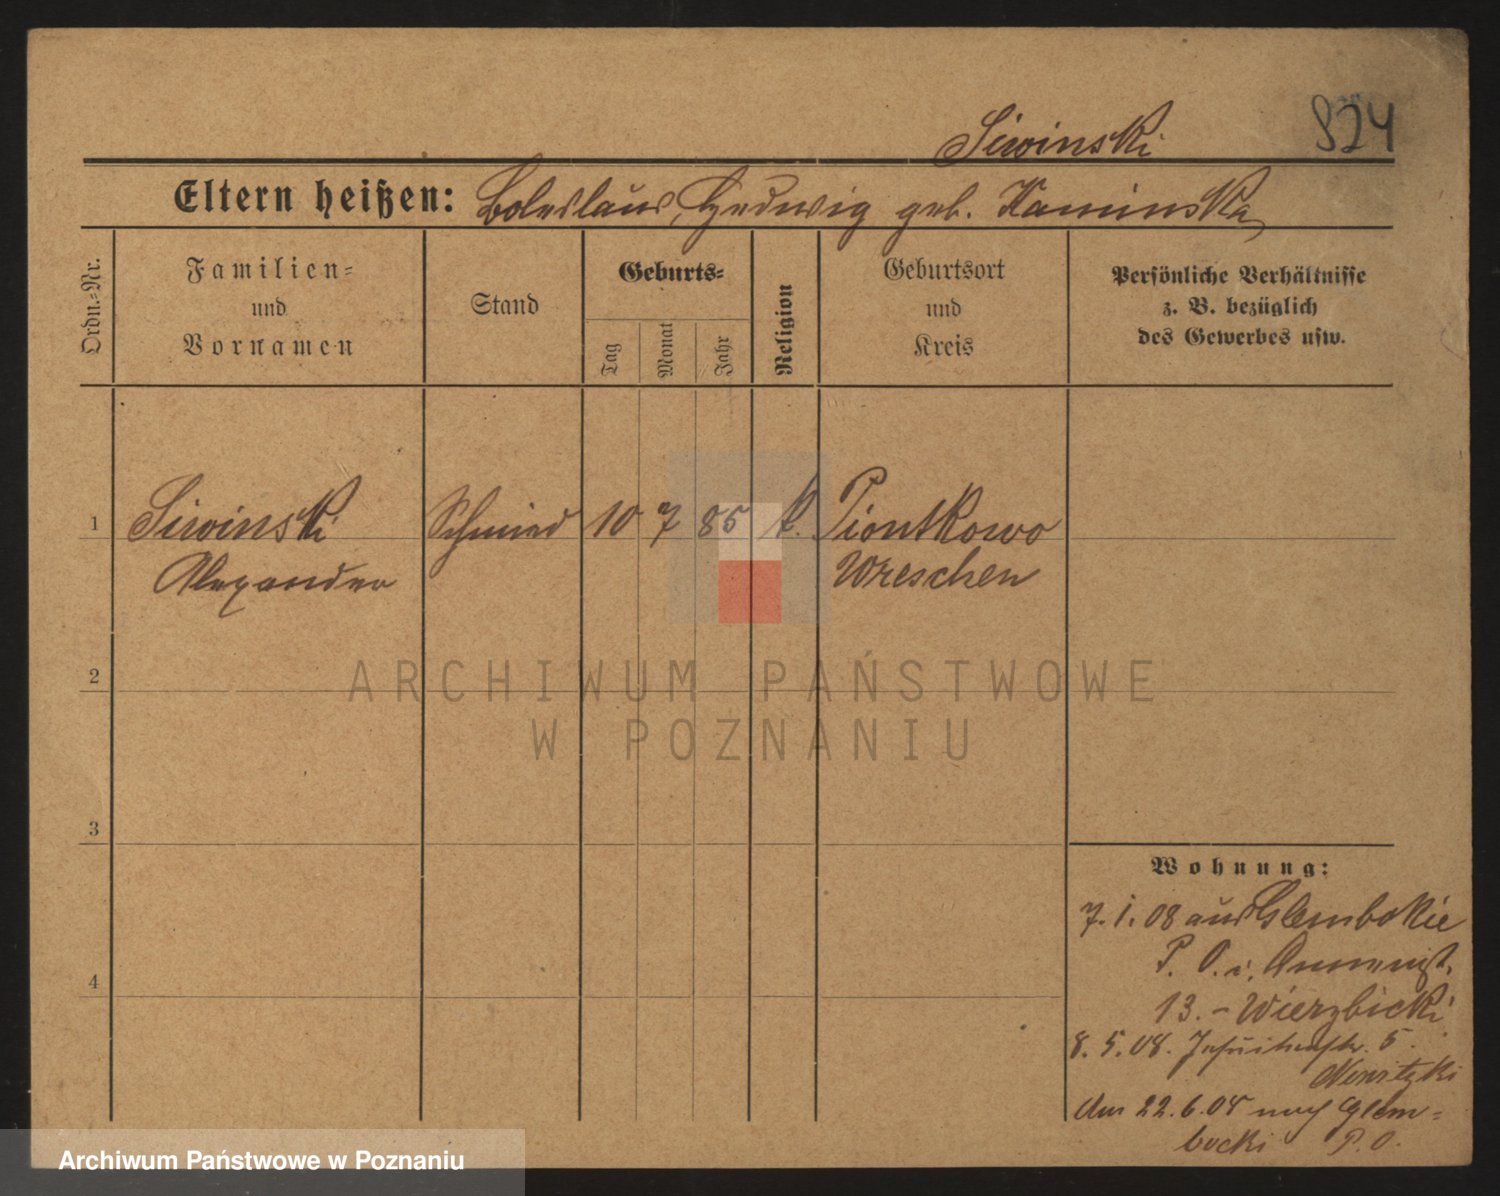 Siwinski
824
Eltern heißen: Boleslaus, Hedwig geb. Kaminska
Ordn.-Nr.
Familien-
und
Vornamen
Stand
Geburts-
Tag
Monat
Jahr
Religion
Geburtsort
und
Kreis
Persönliche Verhältnisse
z. B. bezüglich
des Gewerbes usw.
1
Siwinski Schmied 10 7 85 k. Piontkowo
Alexander Wreschen
2
ARCHIWUM PAŃSTWOWE
W POZNANIU
3
4
Wohnung:
7.1.08 aus Glembokie
P. O. i.
13. - Wierzbicki
8.5.08. Jesuitenstr. 5.
Am 22.6.08 nach Glem-
bocki P. O.
Archiwum Państwowe w Poznaniu